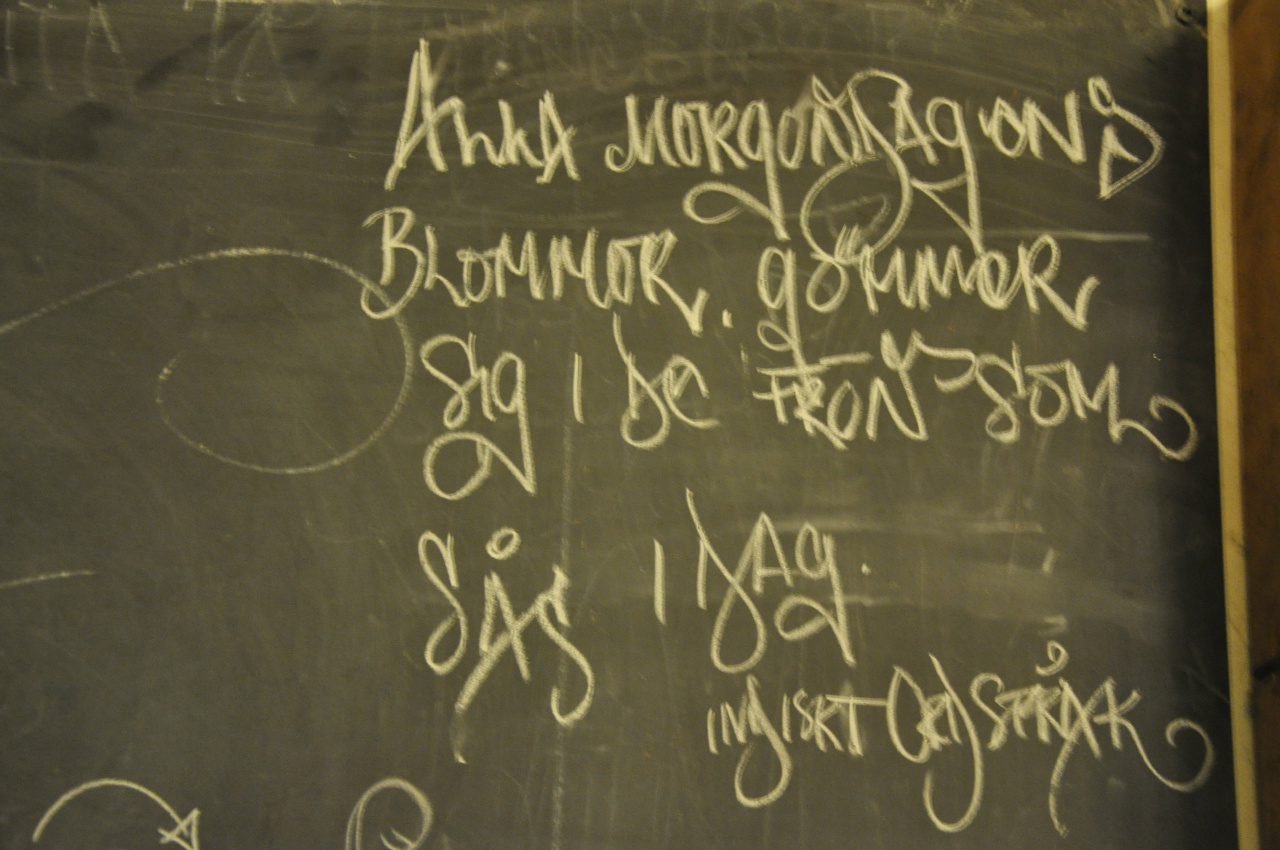 Alla morgondagens
Blommor. gömmer
sig i de frön som
sås i dag.
indiskt ordspråk